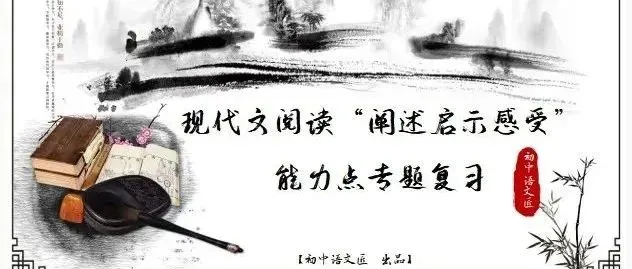 现代文阅读“阐述启示感受”
能力点专题复习
初中语文匠
【初中语文匠 出品】